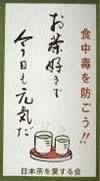 食中毒を防ごう!!
お茶好きで
今日も元気だ
日本茶を愛する会